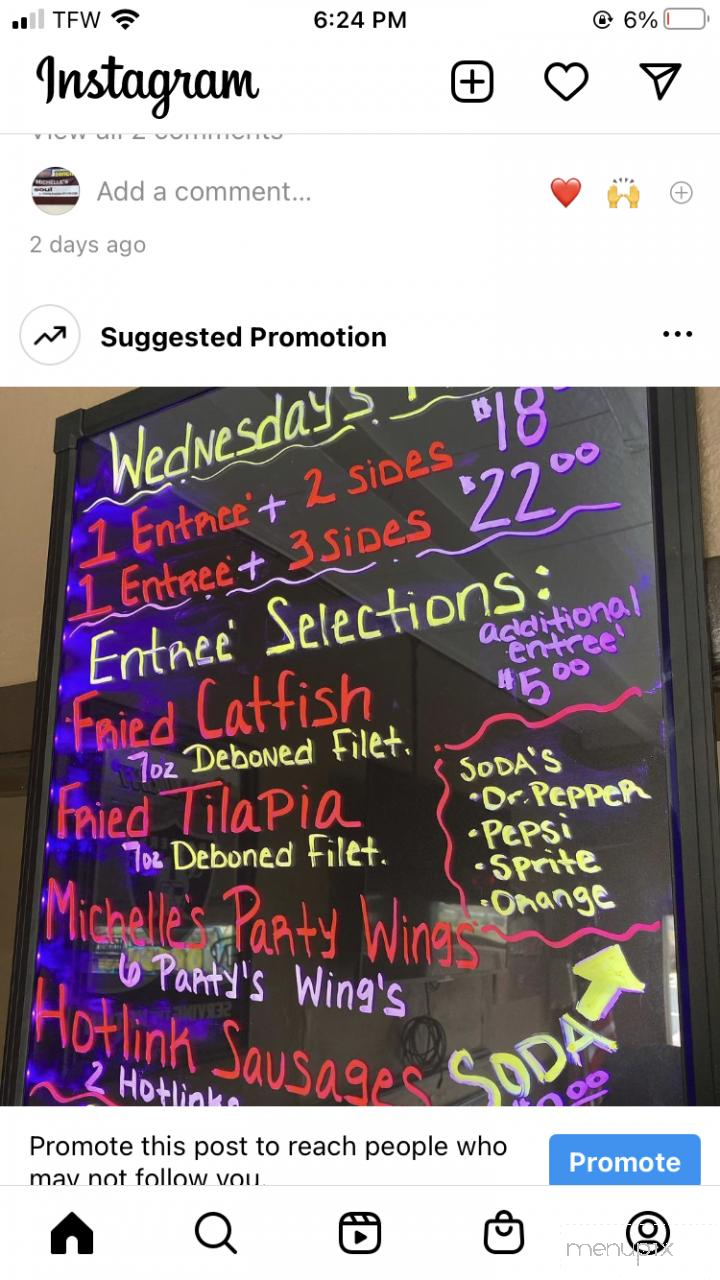 TFW 6:24 PM 6%
Instagram
View all 2 comments
Add a comment...
2 days ago
Suggested Promotion
Wednesday's
1 Entree' + 2 SIDES $18
1 Entree' + 3 SIDES $22.00
Entree' Selections:
additional
entree'
$5.00
Fried Catfish
7oz Deboned Filet.
Fried Tilapia
7oz Deboned Filet.
SODA'S
•Dr. PEPPER
•Pepsi
•Sprite
•Orange
Michelle's Party Wings
6 Party's Wing's
Hotlink Sausages
2 Hotlinks
SODA
Promote this post to reach people who
may not follow you.
Promote
menupix